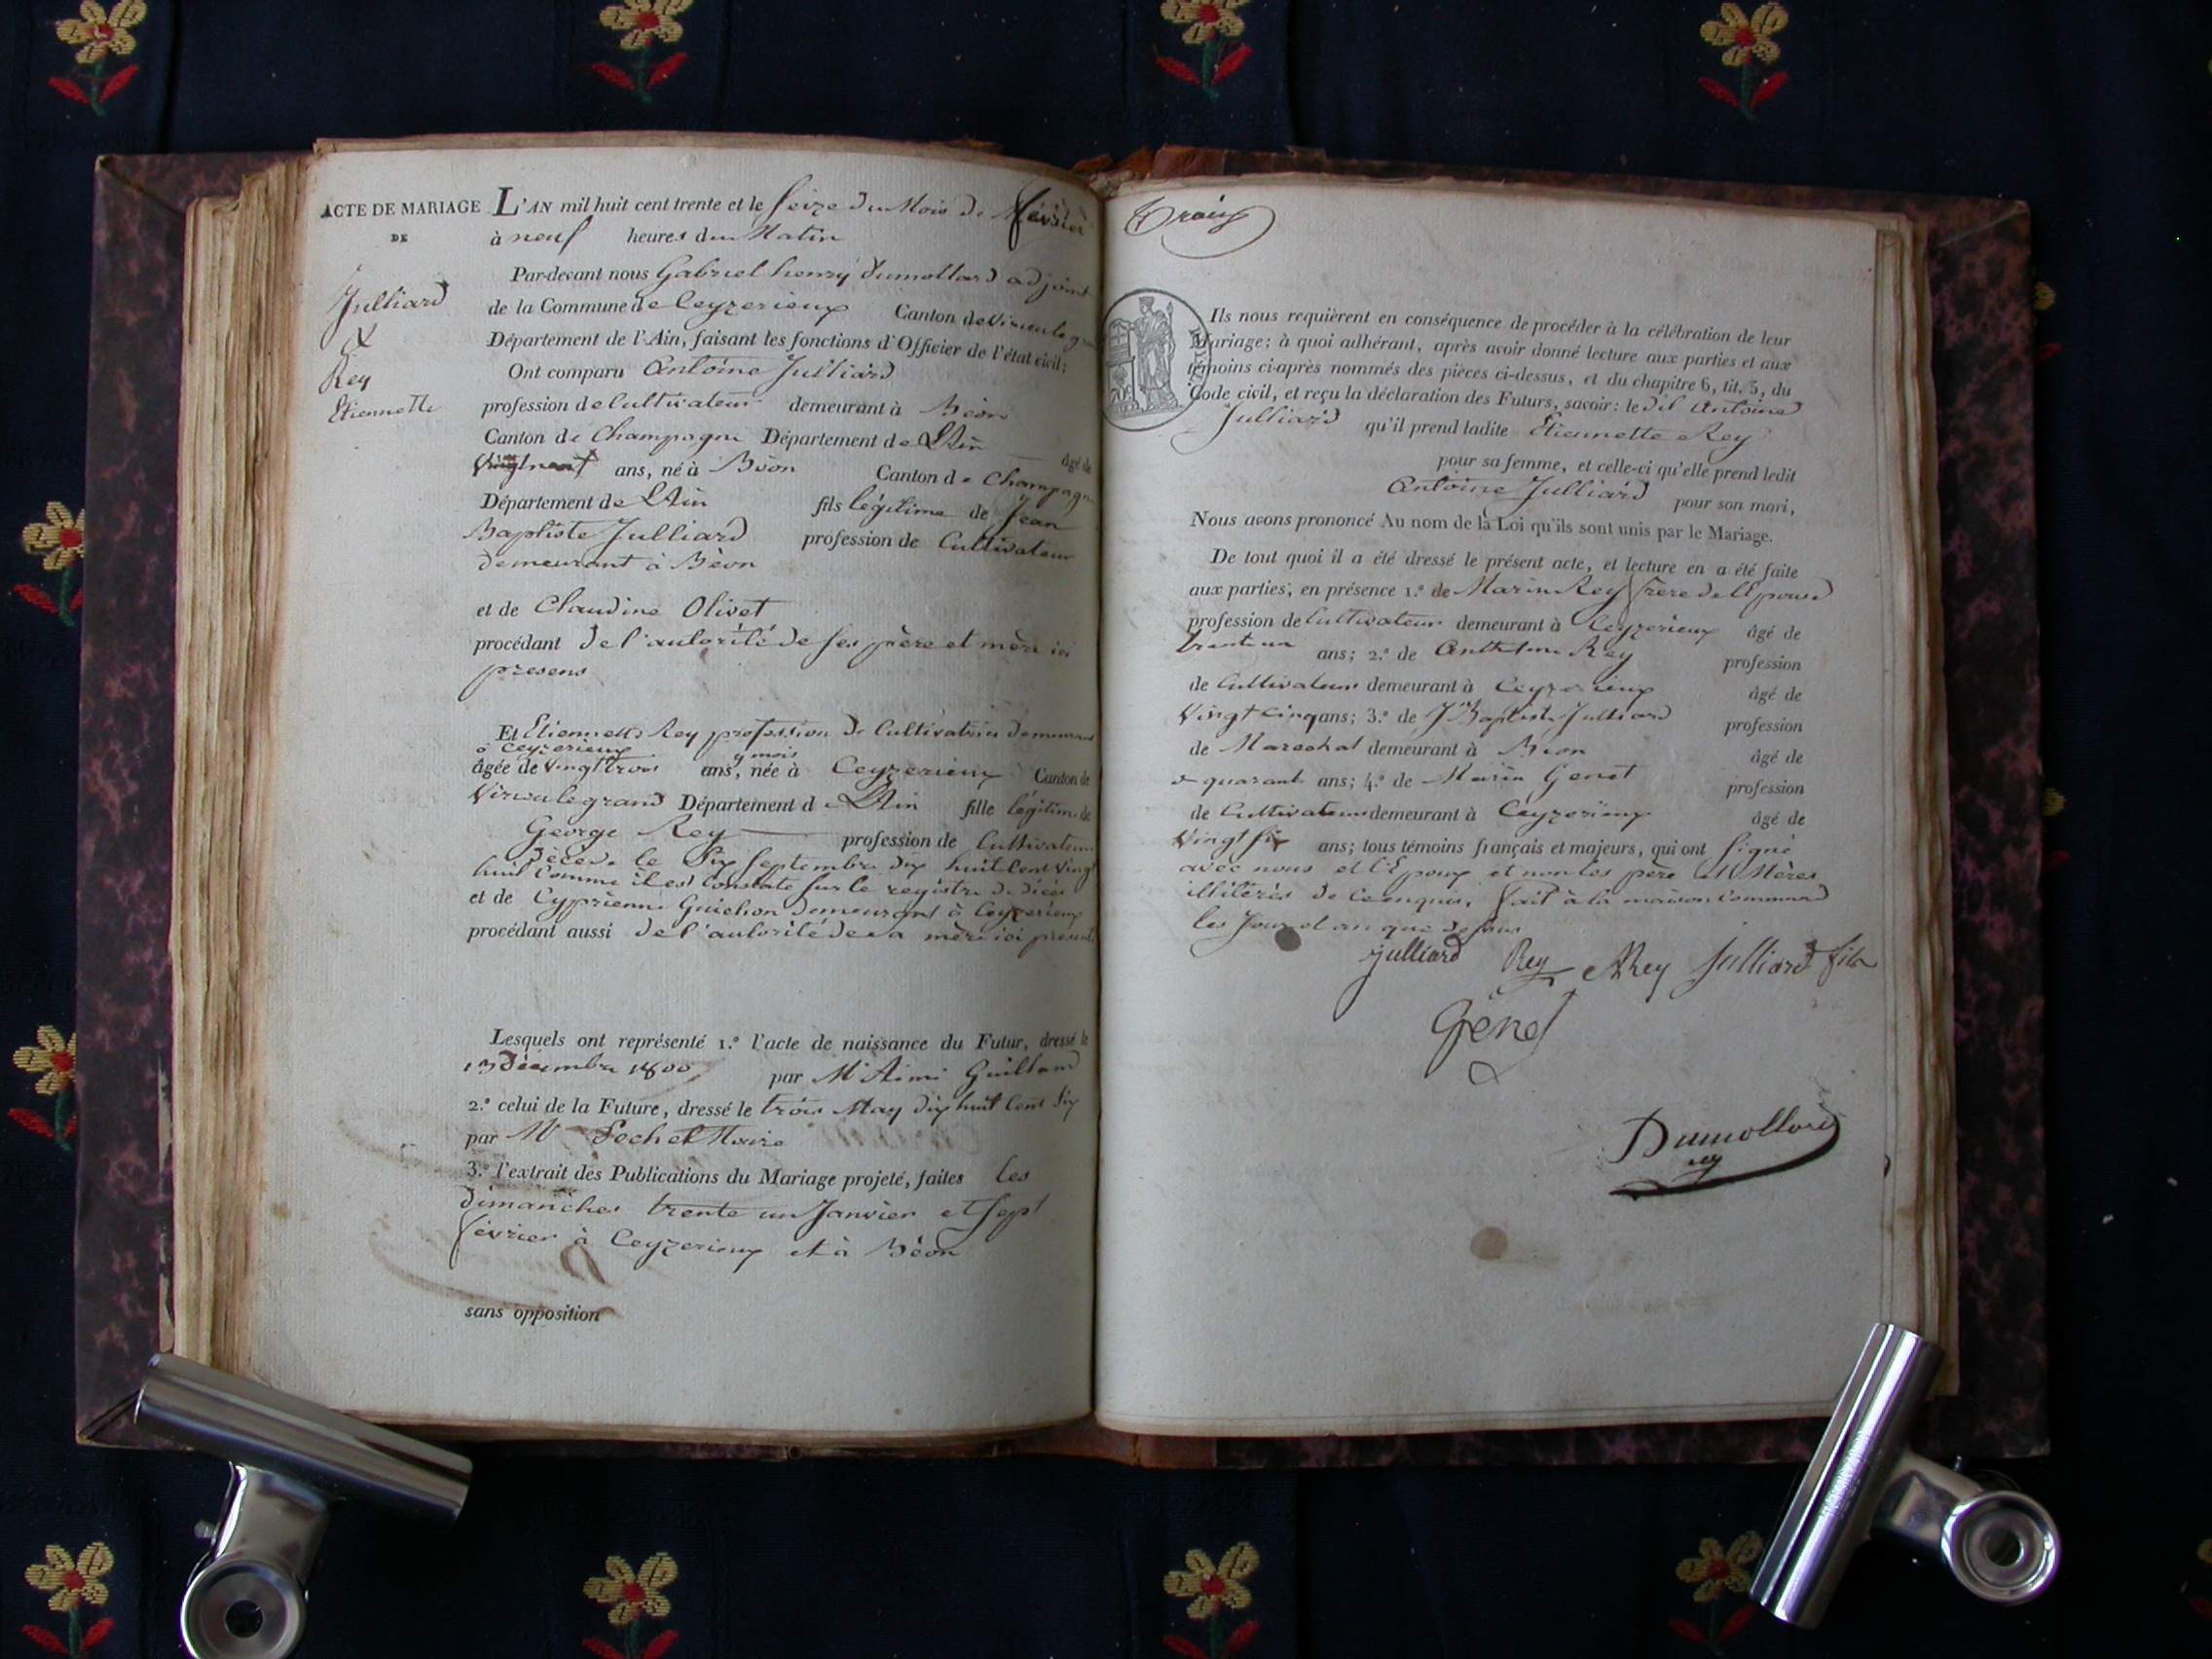 ACTE DE MARIAGE
DE
Julliard
&
Rey
Etiennette
L'AN mil huit cent trente et le Seize du Mois de février
à neuf heures du Matin
Par-devant nous Gabriel henry dumollard adjoint
de la Commune de Ceyzerieux Canton de Virieulegrand
Département de l'Ain, faisant les fonctions d'Officier de l'état civil;
Ont comparu Antoine Julliard
profession de Cultivateur demeurant à Béon
Canton de Champagne Département de L'Ain âgé de
Vingtneuf ans, né à Béon Canton de Champagne
Département de L'Ain fils légitime de Jean
Baptiste Julliard profession de Cultivateur
demeurant à Béon
et de Claudine Olivet
procédant de l'autorité de ses père et mère ici
presens
Et Etiennette Rey profession de Cultivatrice demeurant
à Ceyzerieux
9 mois
âgée de Vingttrois ans, née à Ceyzerieux Canton de
Virieulegrand Département de L'Ain fille légitime de
George Rey profession de Cultivateur
décédé le Six Septembre dix huit Cent Vingt
huit Comme il est Constaté sur le registre de décès
et de Cyprienne Guichon demeurant à Ceyzerieux
procédant aussi de l'autorité de sa mère ici présente
Lesquels ont représenté 1.º l'acte de naissance du Futur, dressé le
13 Décembre 1800 par Mr Aimé Guilland
2.º celui de la Future, dressé le trois May dix huit Cent Six
par Mr Pochet Maire
3.º l'extrait des Publications du Mariage projeté, faites les
dimanches trente un Janvier et Sept
février à Ceyzerieux et à Béon
sans opposition
Trois
Ils nous requièrent en conséquence de procéder à la célébration de leur
Mariage; à quoi adhérant, après avoir donné lecture aux parties et aux
témoins ci-après nommés des pièces ci-dessus, et du chapitre 6, tit. 5, du
Code civil, et reçu la déclaration des Futurs, savoir: le dit Antoine
Julliard qu'il prend ladite Etiennette Rey
pour sa femme, et celle-ci qu'elle prend ledit
Antoine Julliard pour son mari,
Nous avons prononcé Au nom de la Loi qu'ils sont unis par le Mariage.
De tout quoi il a été dressé le présent acte, et lecture en a été faite
aux parties; en présence 1.º de Marin Rey frère de l'Epouse
profession de Cultivateur demeurant à Ceyzerieux âgé de
trente un ans; 2.º de Anthelme Rey profession
de Cultivateur demeurant à Ceyzerieux âgé de
Vingt Cinq ans; 3.º de J Baptiste Julliard profession
de Marechal demeurant à Béon âgé de
quarante ans; 4.º de Marin Genet profession
de Cultivateur demeurant à Ceyzerieux âgé de
Vingt six ans; tous témoins français et majeurs, qui ont signé
avec nous et l'Epoux et non les père et Mères
illitérés de ce enquis. fait à la maison Commune
les Jour et an que dessus
julliard Rey ARey Julliard fils
Genet
Dumollard